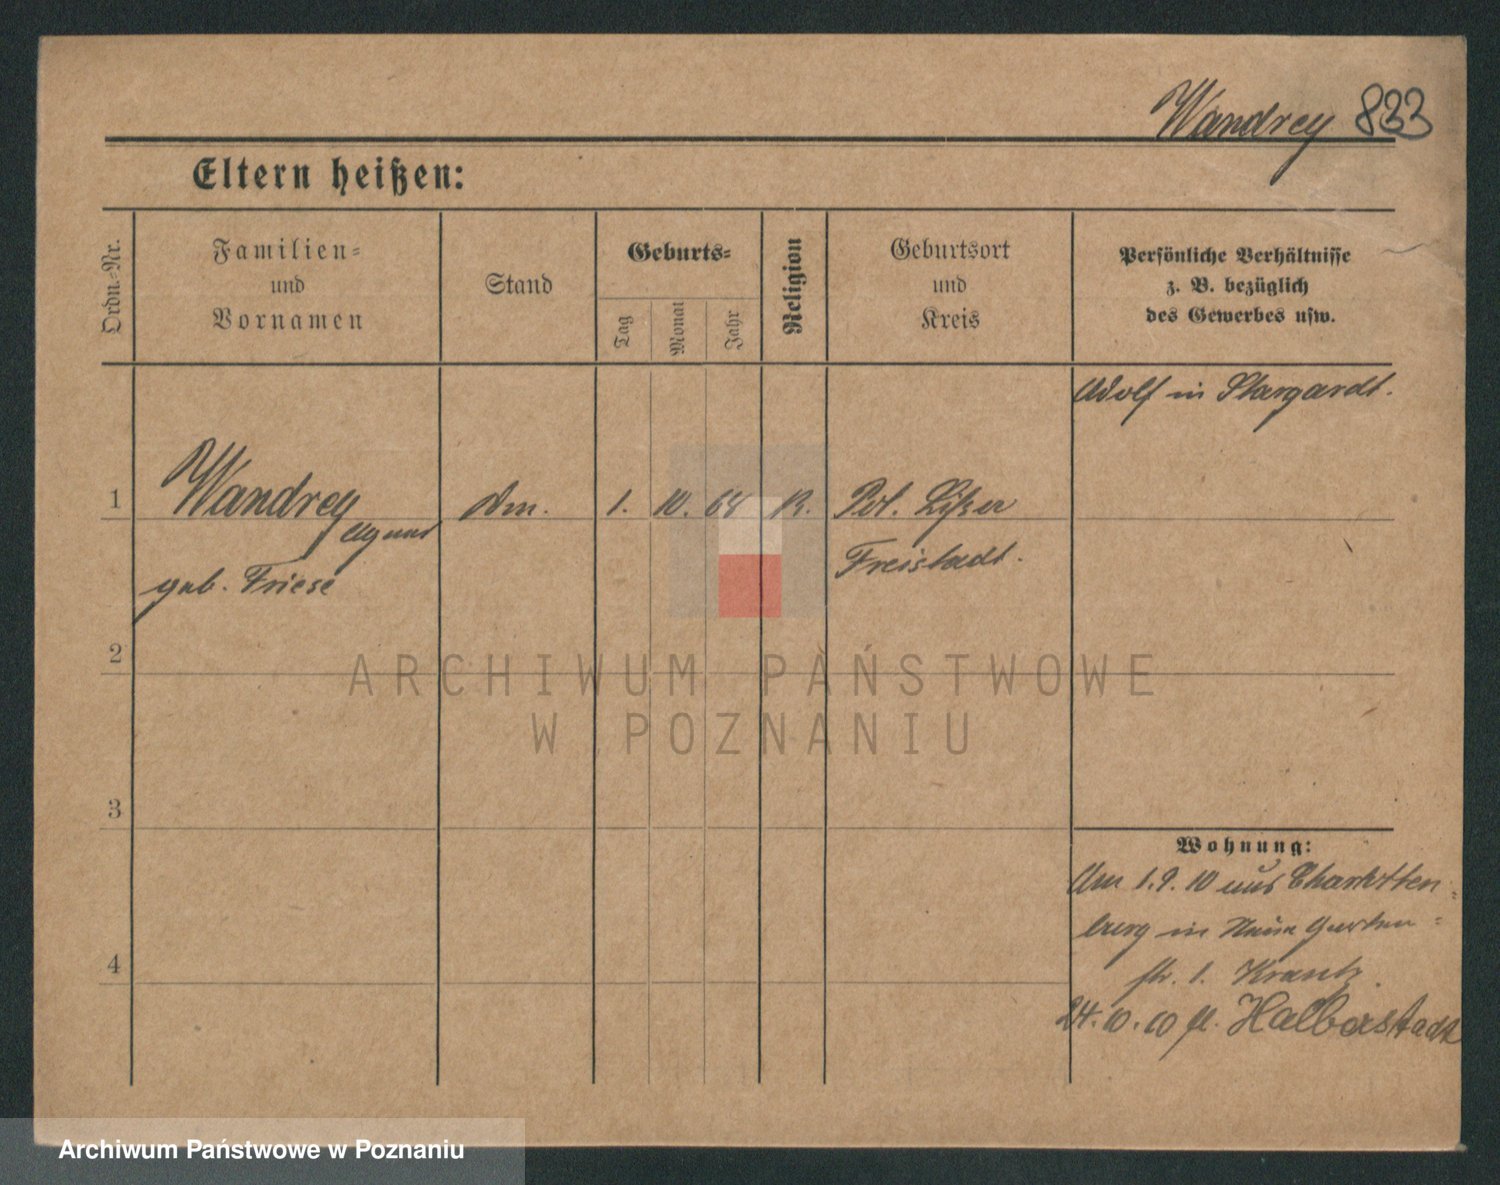 Wandrey 833
Eltern heißen:
Ordn.-Nr.
Familien- und Vornamen
Stand
Geburts-
Tag
Monat
Jahr
Religion
Geburtsort und Kreis
Persönliche Verhältnisse
z. B. bezüglich
des Gewerbes usw.
Adolf in Stargardt.
1 Wandrey 1. 10. 64 Pol.
geb. Friese
Freistadt.
2
3
4
Wohnung:
Am 1.9.10 aus Charlotten-
burg in Neue Garten-
str. 1. Krantz.
24.10.10 Halberstadt
ARCHIWUM PAŃSTWOWE
W POZNANIU
Archiwum Państwowe w Poznaniu